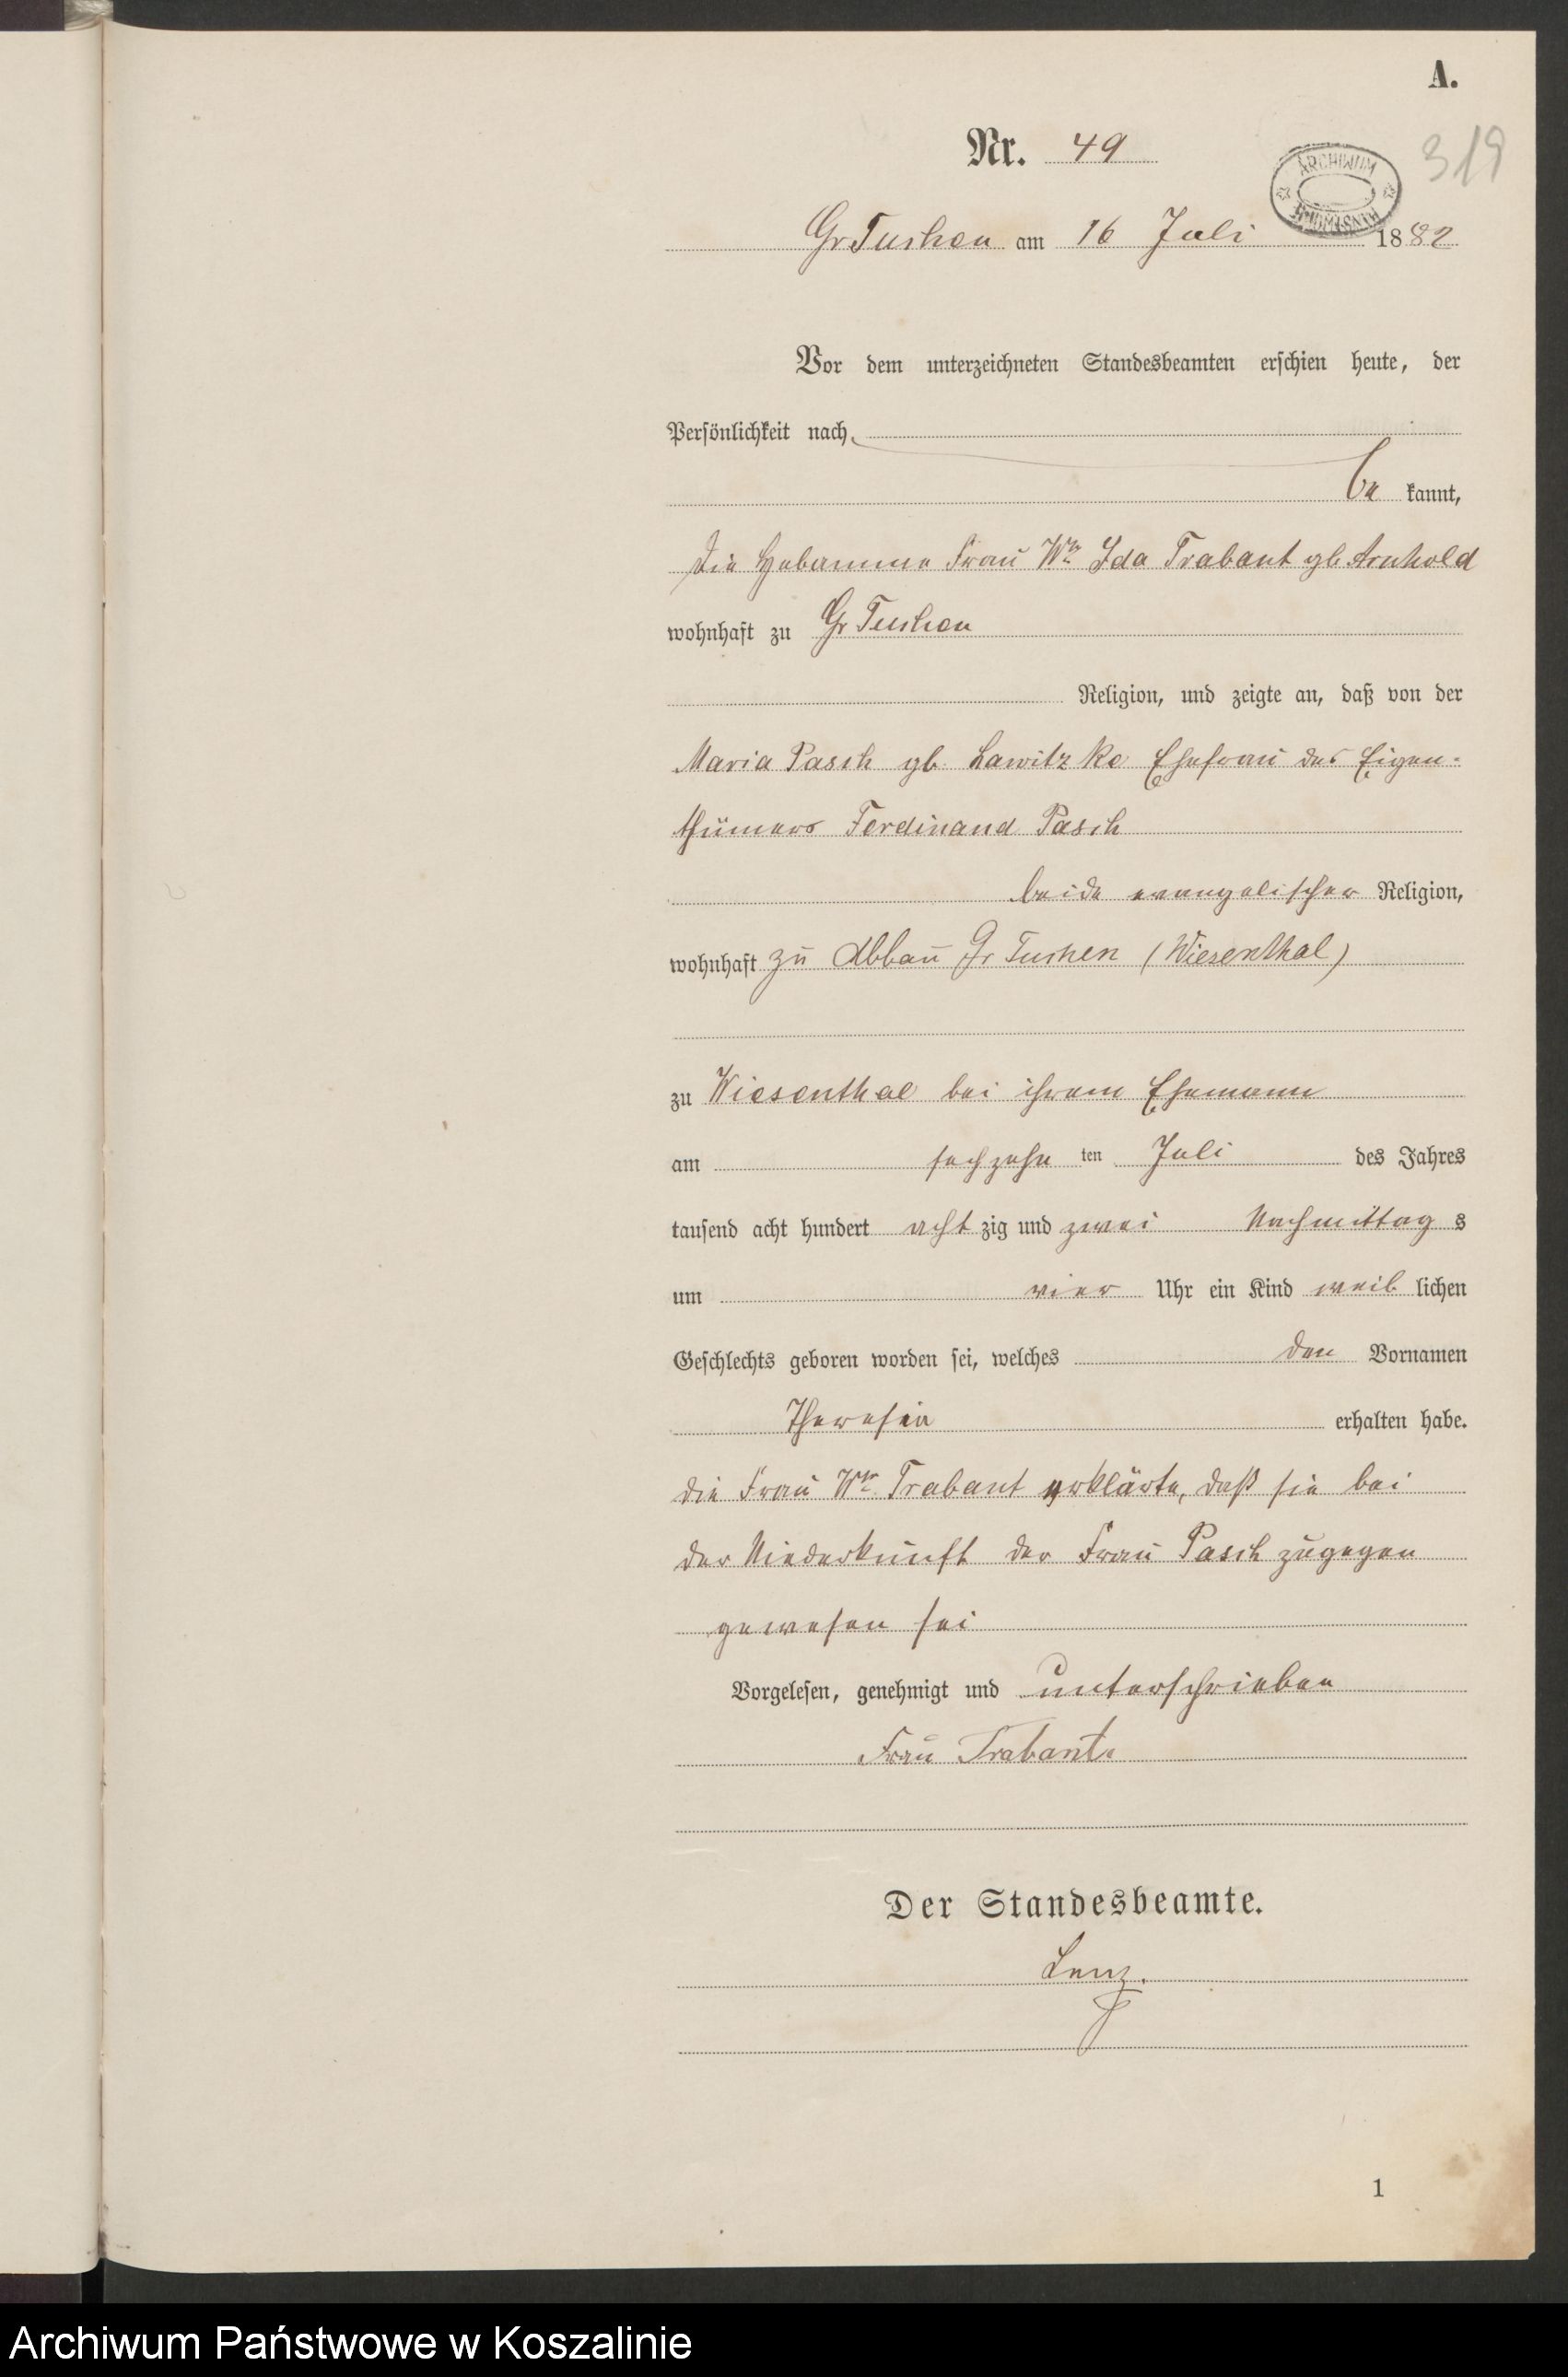 A.
Nr. 49
319
ARCHIWUM PAŃSTWOWE
Gr Tuchen am 16 Juli 1882
Vor dem unterzeichneten Standesbeamten erschien heute, der
Persönlichkeit nach
be kannt,
die Hebamme Frau Ww Ida Trabant gb Arnhold
wohnhaft zu Gr Tuchen
Religion, und zeigte an, daß von der
Maria Pasch gb. Lawitzke Ehefrau des Eigen-
thümers Ferdinand Pasch
beide evangelischer Religion,
wohnhaft zu Abbau Gr Tuchen (Wiesenthal)
zu Wiesenthal bei ihrem Ehemann
am sechzehn ten Juli des Jahres
tausend acht hundert acht zig und zwei Nachmittag s
um vier Uhr ein Kind weib lichen
Geschlechts geboren worden sei, welches den Vornamen
Theresia erhalten habe.
die Frau Ww Trabant erklärte, daß sie bei
der Niederkunft der Frau Pasch zugegen
gewesen sei
Vorgelesen, genehmigt und unterschrieben
Frau Trabant
Der Standesbeamte.
Lenz.
1
Archiwum Państwowe w Koszalinie